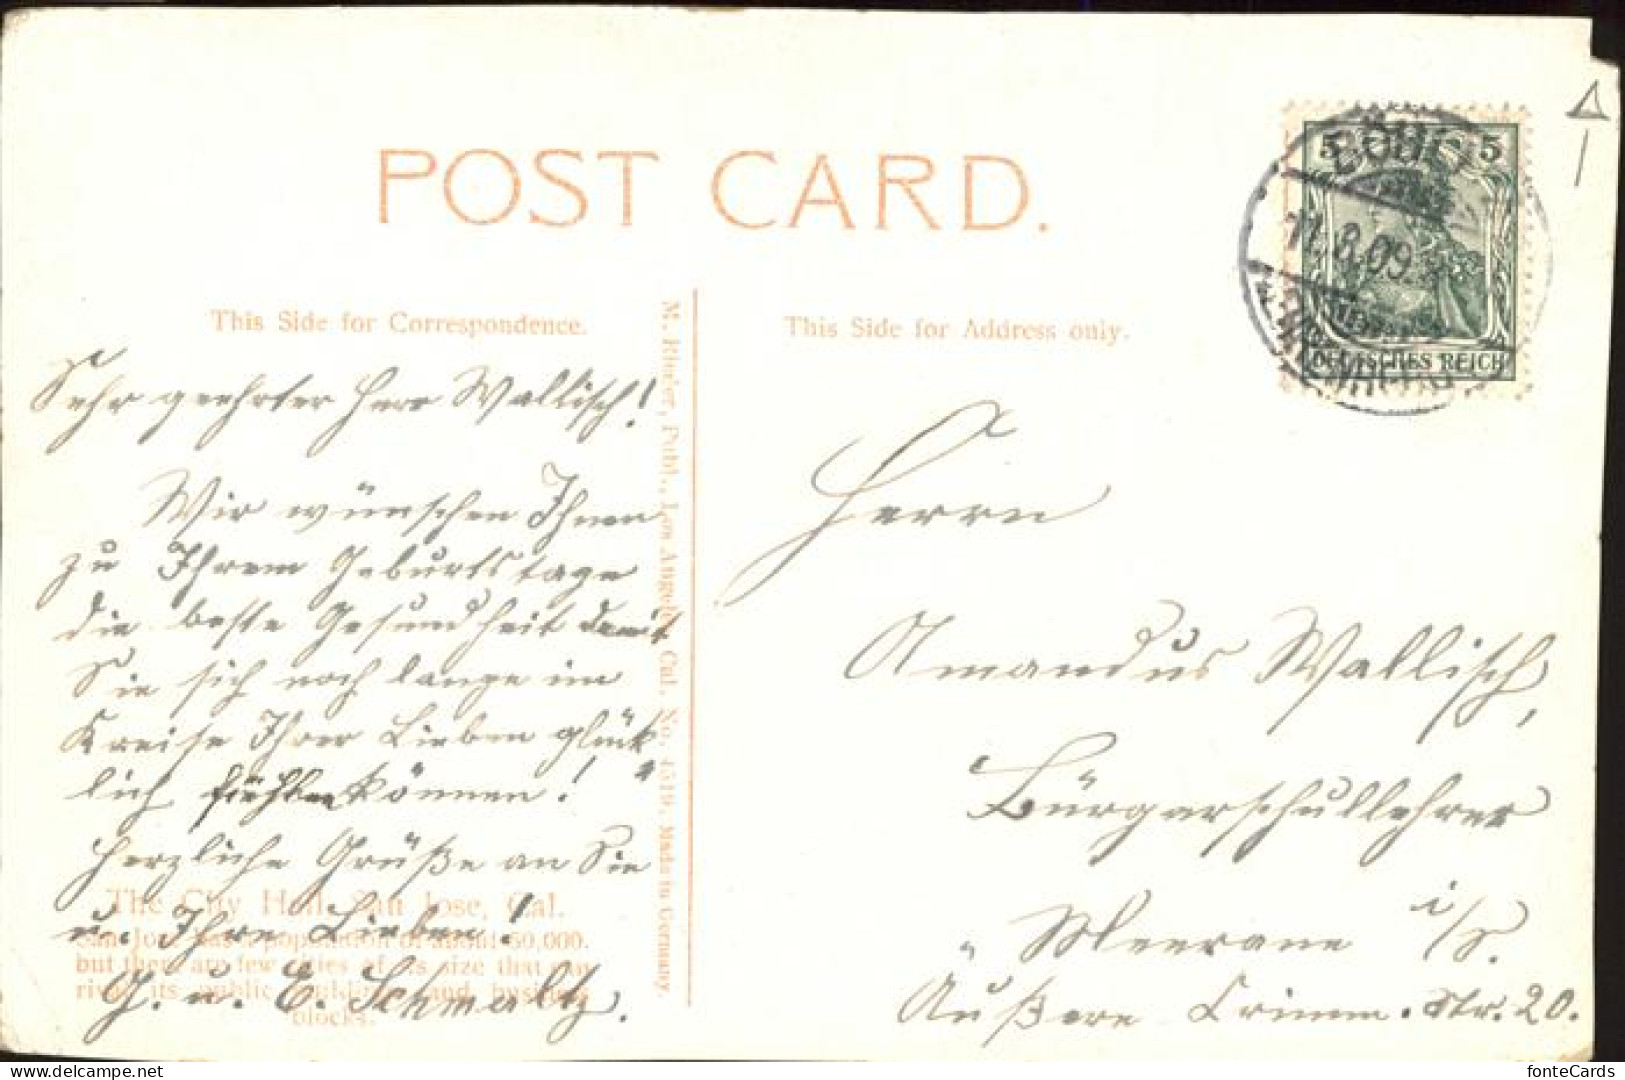 POST CARD.
This Side for Correspondence.
This Side for Address only.
M. Rieder, Publ., Los Angeles, Cal. No. 4519. Made in Germany.
5 5
DEUTSCHES REICH
11.8.09.
Sehr geehrter Herr Wallisch!
Wir wünschen Ihnen
zu Ihrem Geburtstage
die beste Gesundheit damit
Sie sich noch lange im
Kreise Ihrer Lieben glück-
lich fühlen können!
Herzliche Grüße an Sie
u. Ihre Lieben!
G. u. E. Schmaltz.
The City Hall, San Jose, Cal.
San Jose has a population of about 50,000.
but there are few cities of its size that can
rival its public buildings and business
blocks.
Herrn
Amandus Wallisch,
Bürgerschullehrer
Meerane i/S.
Äußere Crimm. Str. 20.
fonteCards